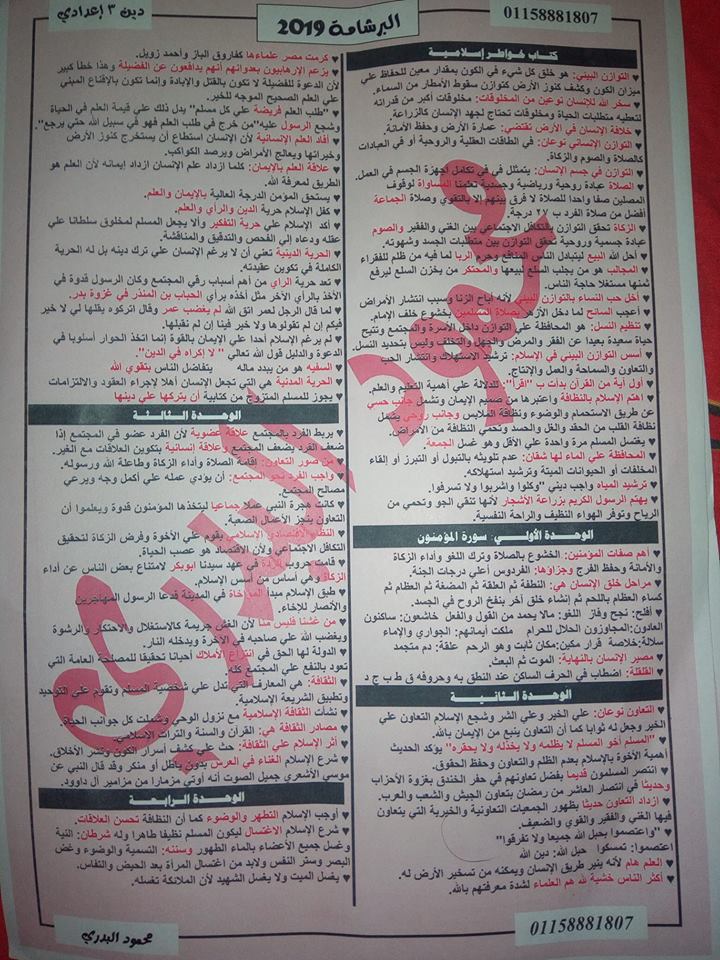 01158881807
البرشامة 2019
دين ٣ إعدادي
كتاب خواطر إسلامية
♥ التوازن البيئي: هو خلق كل شيء في الكون بمقدار معين للحفاظ علي
ميزان الكون وكشف كنوز الأرض كتوازن سقوط الأمطار من السماء.
♥ سخر الله للإنسان نوعين من المخلوقات: مخلوقات أكبر من قدراته
لتعطيه متطلبات الحياة ومخلوقات تحتاج لجهد الإنسان كالزراعة.
♥ خلافة الإنسان في الأرض تقتضي: عمارة الأرض وحفظ الأمانة.
♥ التوازن الإنساني نوعان: في الطاقات العقلية والروحية أو في العبادات
كالصلاة والصوم والزكاة.
♥ التوازن في جسم الإنسان: يتمثل في في تكامل أجهزة الجسم في العمل.
♥ الصلاة عبادة روحية ورياضية وجسدية تعلمنا المساواة لوقوف
المصلين صفا واحدا للصلاة لا فرق بينهم إلا بالتقوي وصلاة الجماعة
أفضل من صلاة الفرد ب ٢٧ درجة.
♥ الزكاة تحقق التوازن والتكافل الاجتماعي بين الغني والفقير والصوم
عبادة جسمية وروحية تحقق التوازن بين متطلبات الجسد وشهوته.
♥ أحل الله البيع ليتبادل الناس المنافع وحرم الربا لما فيه من ظلم للفقراء
♥ الجالب هو من يجلب السلع لبيعها والمحتكر من يخزن السلع ليرفع
ثمنها مستغلا حاجة الناس.
♥ أخل حب النساء بالتوازن البيئي لأنه أباح الزنا وسبب انتشار الأمراض
♥ أعجب السائح لما دخل الأزهر بصلاة المسلمين بخشوع خلف الإمام.
♥ تنظيم النسل: هو المحافظة علي التوازن داخل الأسرة والمجتمع ونتيح
حياة سعيدة بعيدا عن الفقر والمرض والجهل والتخلف وليس بتحديد النسل.
♥ أسس التوازن البيئي في الإسلام: ترشيد الاستهلاك وانتشار الحب
والتعاون والسماحة والعمل والإنتاج.
♥ أول آية من القرآن بدأت ب "اقرأ": للدلالة علي أهمية التعليم والعلم.
♥ اهتم الإسلام بالنظافة واعتبرها من صميم الإيمان وتشمل جانب حسي
عن طريق الاستحمام والوضوء ونظافة الملابس وجانب روحي يشمل
نظافة القلب من الحقد والغل والحسد وتحمي النظافة من الأمراض.
♥ يغتسل المسلم مرة واحدة علي الأقل وهو غسل الجمعة.
♥ المحافظة علي الماء لها شقان: عدم تلويثه بالتبول أو التبرز أو إلقاء
المخلفات أو الحيوانات الميتة وترشيد استهلاكه.
♥ ترشيد المياه واجب ديني "وكلوا واشربوا ولا تسرفوا".
♥ يهتم الرسول الكريم بزراعة الأشجار لأنها تنقي الجو وتحمي من
الرياح وتوفر الهواء النظيف والراحة النفسية.
الوحدة الأولي: سورة المؤمنون
♥ أهم صفات المؤمنين: الخشوع بالصلاة وترك اللغو وأداء الزكاة
والأمانة وحفظ الفرج وجزاؤها: الفردوس أعلي درجات الجنة.
♥ مراحل خلق الإنسان هي: النطفة ثم العلقة ثم المضغة ثم العظام ثم
كساء العظام باللحم ثم إنشاء خلق آخر بنفخ الروح في الجسد.
♥ أفلح: نجح وفاز اللغو: مالا يحمد من القول والفعل خاشعون: ساكنون
العادون: المجاوزون الحلال للحرام ملكت أيمانهم: الجواري والإماء
سلالة: خلاصة قرار مكين: مكان ثابت وهو الرحم علقة: دم متجمد
♥ مصير الإنسان بالنهاية: الموت ثم البعث.
♥ القلقلة: اضطاب في الحرف الساكن عند النطق به وحروفه ق ط ب ج د
الوحدة الثانية
♥ التعاون نوعان: علي الخير وعلي الشر وشجع الإسلام التعاون علي
الخير وجعل له ثوابا كما أن التعاون ينبع من الإيمان بالله.
♥ "المسلم أخو المسلم لا يظلمه ولا يخذله ولا يحقره" يؤكد الحديث
أهمية الأخوة بالإسلام بعدم الظلم والتعاون وحفظ الحقوق.
♥ انتصر المسلمون قديما بفضل تعاونهم في حفر الخندق بغزوة الأحزاب
وحديثا في انتصار العاشر من رمضان بتعاون الجيش والشعب والعرب.
♥ ازداد التعاون حديثا بظهور الجمعيات التعاونية والخيرية التي يتعاون
فيها الغني والفقير والقوي والضعيف.
♥ "واعتصموا بحبل الله جميعا ولا تفرقوا"
اعتصموا: تمسكوا حبل الله: دين الله
♥ العلم هام لأنه ينير طريق الإنسان ويمكنه من تسخير الأرض له.
♥ أكثر الناس خشية لله هم العلماء لشدة معرفتهم بالله.
♥ كرمت مصر علماءها كفاروق الباز وأحمد زويل.
♥ يزعم الإرهابيون بعدوانهم أنهم يدافعون عن الفضيلة وهذا خطأ كبير
لأن الدعوة للفضيلة لا تكون بالقتل والإبادة وإنما تكون بالإقناع المبني
علي العلم الصحيح الموجه للخير.
♥ "طلب العلم فريضة علي كل مسلم" يدل ذلك علي قيمة العلم في الحياة
وشجع الرسول عليه "من خرج في طلب العلم فهو في سبيل الله حتي يرجع".
♥ أفاد العلم الإنسانية لأن الإنسان استطاع أن يستخرج كنوز الأرض
وخيراتها ويعالج الأمراض ويرصد الكواكب.
♥ علاقة العلم بالإيمان: كلما ازداد علم الإنسان ازداد إيمانه لأن العلم هو
الطريق لمعرفة الله.
♥ يستحق المؤمن الدرجة العالية بالإيمان والعلم.
♥ كفل الإسلام حرية الدين والرأي والعلم.
♥ أكد الإسلام علي حرية التفكير وألا يجعل المسلم لمخلوق سلطانا علي
عقله ودعاه إلي الفحص والتدقيق والمناقشة.
♥ الحرية الدينية تعني أن لا يرغم الإنسان علي ترك دينه بل له الحرية
الكاملة في تكوين عقيدته.
♥ تعد حرية الراي من أهم أسباب رقي المجتمع وكان الرسول قدوة في
الأخذ بالرأي الآخر مثل أخذه برأي الحباب بن المنذر في غزوة بدر.
♥ لما قال الرجل لعمر اتق الله لم يغضب عمر وقال اتركوه يقلها لي لا خير
فيكم إن لم تقولوها ولا خير فينا إن لم نقبلها.
♥ لم يرغم الإسلام أحدا علي الإيمان بالقوة إنما اتخذ الحوار أسلوبا في
الدعوة والدليل قول الله تعالي " لا إكراه في الدين".
♥ السفيه هو من يبدد ماله ♥ يتفاضل الناس بتقوي الله
♥ الحرية المدنية هي التي تجعل الإنسان أهلا لإجراء العقود والالتزامات
♥ يجوز للمسلم المتزوج من كتابية أن يتركها علي دينها
الوحدة الثالثة
♥ يربط الفرد بالمجتمع علاقة عضوية لأن الفرد عضو في المجتمع إذا
ضعف الفرد يضعف المجتمع وعلاقة إنسانية بتكوين العلاقات مع الغير.
♥ من صور التعاون: إقامة الصلاة وأداء الزكاة وطاعة الله ورسوله.
♥ واجب الفرد نحو المجتمع: أن يؤدي عمله علي أكمل وجه ويرعي
مصالح المجتمع.
♥ كانت هجرة النبي عملا جماعيا ليتخذها المؤمنون قدوة ويعلموا أن
التعاون ينجز الأعمال الصعبة.
♥ النظم الاقتصادي الإسلامي يقوم علي الأخوة وفرض الزكاة لتحقيق
التكافل الاجتماعي ولأن الاقتصاد هو عصب الحياة.
♥ قامت حروب الردة في عهد سيدنا ابوبكر لامتناع بعض الناس عن أداء
الزكاة وهي أساس من أسس الإسلام.
♥ طبق الإسلام مبدأ المؤاخاة في المدينة فدعا الرسول المهاجرين
والأنصار للإخاء.
♥ من غشنا فليس منا لأن الغش جريمة كالاستغلال والاحتكار والرشوة
ويغضب الله علي صاحبه في الآخرة ويدخله النار.
♥ الدولة لها الحق في انتزاع الأملاك أحيانا تحقيقا للمصلحة العامة التي
تعود بالنفع علي المجتمع كله
♥ الثقافة: هي المعارف التي تدل علي شخصية المسلم وتقوم علي التوحيد
وتطبيق الشريعة الإسلامية.
♥ نشأت الثقافة الإسلامية مع نزول الوحي وشملت كل جوانب الحياة.
♥ مصادر الثقافة هي: القرآن والسنة والتراث الإسلامي.
♥ أثر الإسلام علي الثقافة: حث علي كشف أسرار الكون ونشر الأخلاق.
♥ شرع الإسلام الغناء في العرس بدون باطل أو منكر وقد قال النبي عن
موسي الأشعري جميل الصوت أنه أوتي مزمارا من مزامير آل داوود.
الوحدة الرابعة
♥ أوجب الإسلام التطهر والوضوء كما أن النظافة تحسن العلاقات.
♥ شرع الإسلام الاغتسال ليكون المسلم نظيفا طاهرا وله شرطان: النية
وغسل جميع الأعضاء بالماء الطهور وسننه: التسمية والوضوء وغض
البصر وستر النفس ولابد من اغتسال المرأة بعد الحيض والنفاس.
♥ يغسل الميت ولا يغسل الشهيد لأن الملائكة تغسله.
محمود البدري
01158881807
محمود البدري